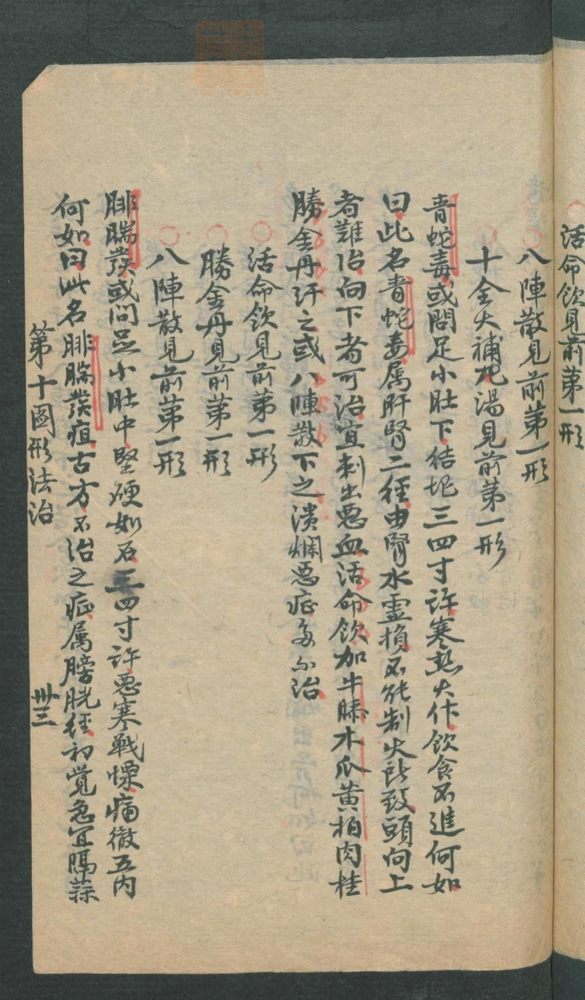 活命飲見前第一形
八陣散見前第一形
十全大補花湯見前第一形
青蛇毒或問足小肚下結坨三四寸許寒熱大作飲食不進何如
曰此名青蛇毒属肝腎二徑由腎水虛損不能制火所致頭向上
者難治向下者可治宜刺出惡血活命飲加牛膝木瓜黃柏肉桂
勝金丹汗之或八陣散下之潰爛惡症多不治
活命飲見前第一形
勝金丹見前第一形
八陣散見前第一形
腓腨發或問足小肚中堅硬如石三四寸許惡寒戰慄痛徹五內
何如曰此名腓腨發疽古方不治之症属膀胱徑初覺急宜隔蒜
第十圖形法治
卅三